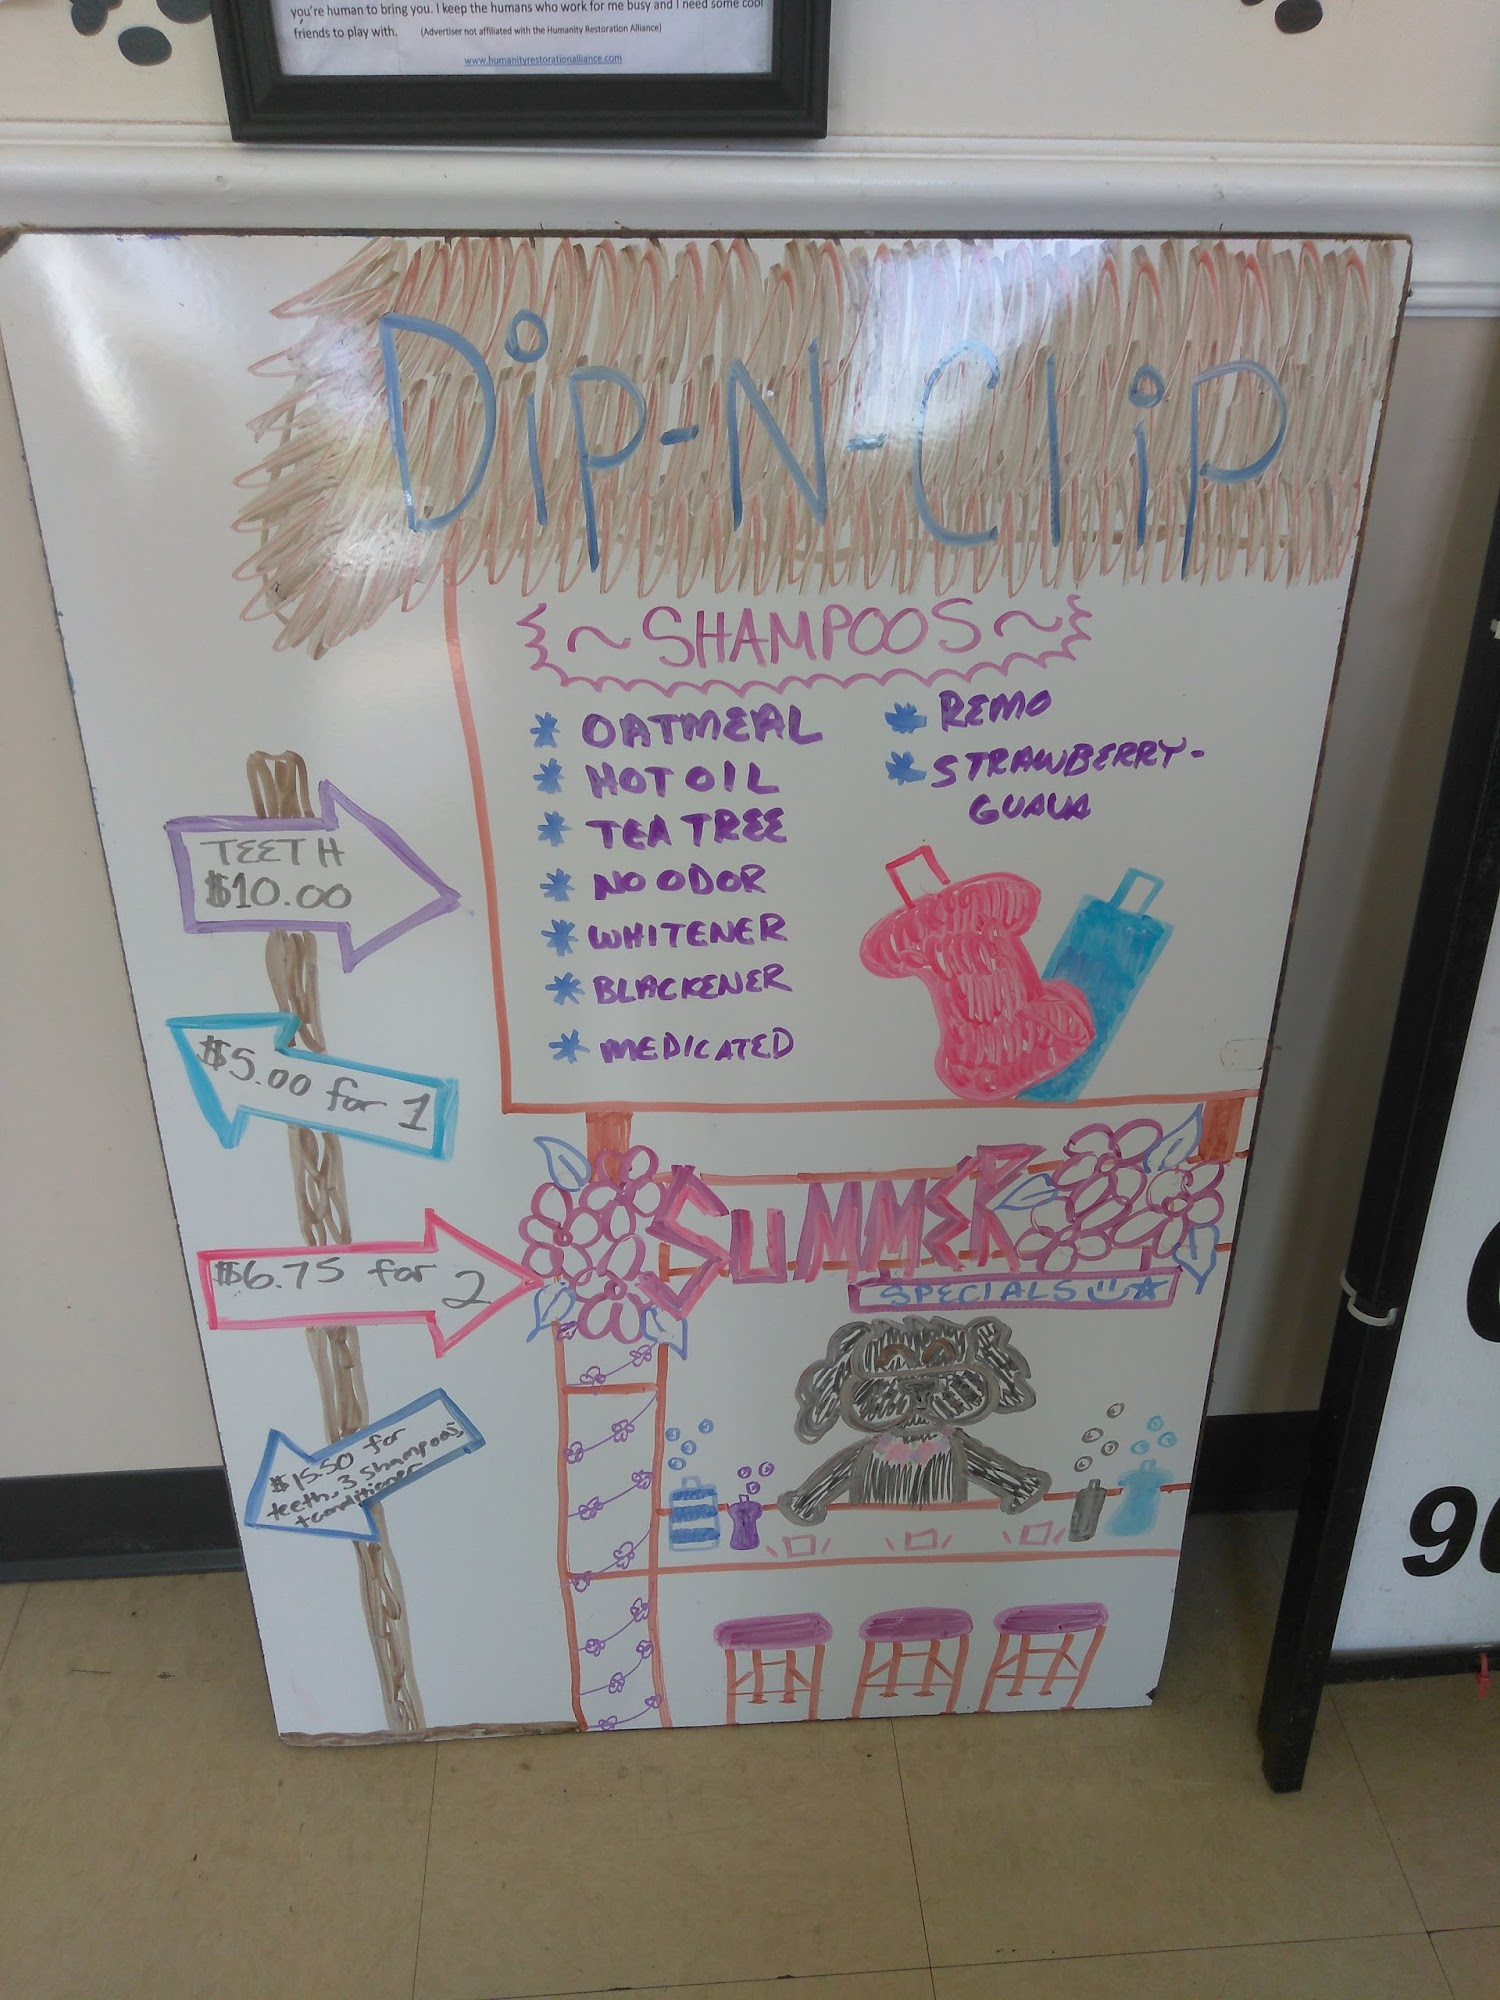 you're human to bring you. I keep the humans who work for me busy and I need some cool
friends to play with. (Advertiser not affiliated with the Humanity Restoration Alliance)
www.humanityrestorationalliance.com
Dip-N-Clip
~SHAMPOOS~
* OATMEAL
* HOT OIL
* TEA TREE
* NO ODOR
* WHITENER
* BLACKENER
* MEDICATED
* REMO
* STRAWBERRY-
GUAVA
TEETH
$10.00
$5.00 for 1
$6.75 for 2
$15.50 for
teeth, 3 shampoos,
+conditioner
SUMMER
SPECIALS
9